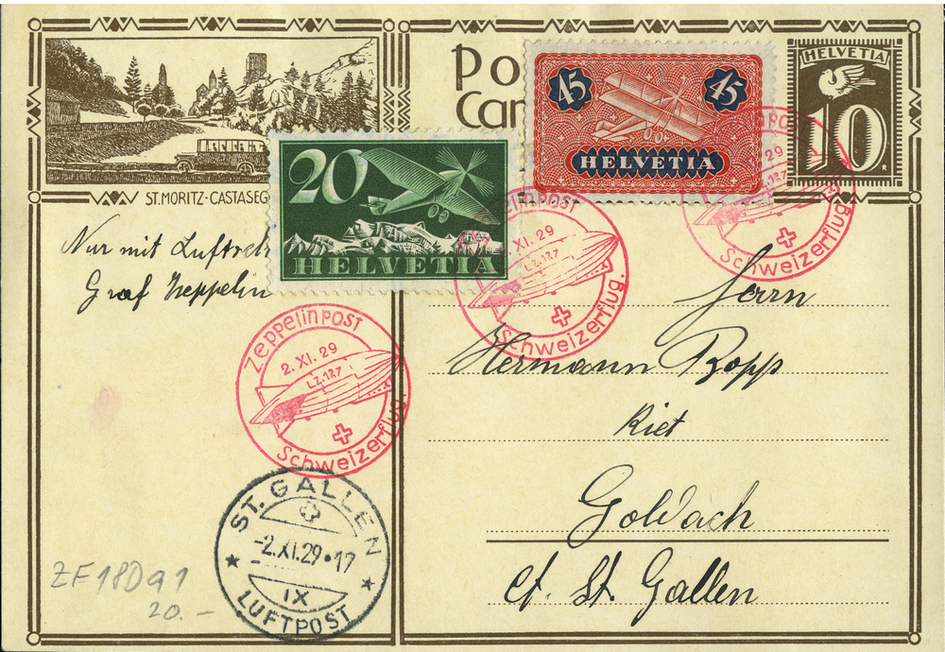 Po
Car
HELVETIA
10
45 45
HELVETIA
20
HELVETIA
ST. MORITZ-CASTASEG
Nur mit Luftsch
Graf Zeppelin
Herrn
Hermann Popp
Riet
Goldach
Ct. St. Gallen
POST
29
127
Schweizerflug.
ZeppelinPOST
XI. 29
L.Z.127
Schweizerflug.
ZeppelinPOST
2. XI. 29
L.Z.127
Schweizerflug.
ST. GALLEN
-2.XI.29•17
IX
LUFTPOST
ZF 18D a 1
20.–